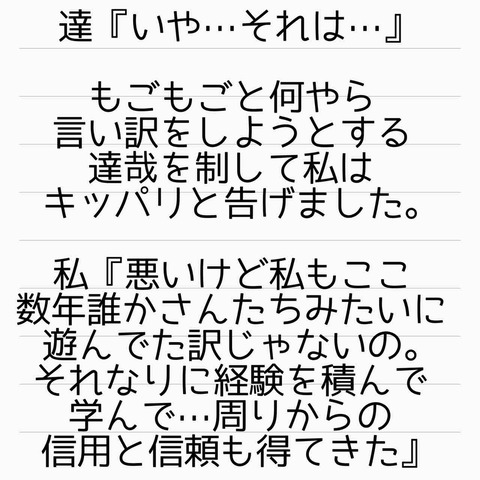 達『いや…それは…』
もごもごと何やら
言い訳をしようとする
達哉を制して私は
キッパリと告げました。
私『悪いけど私もここ
数年誰かさんたちみたいに
遊んでた訳じゃないの。
それなりに経験を積んで
学んで…周りからの
信用と信頼も得てきた』